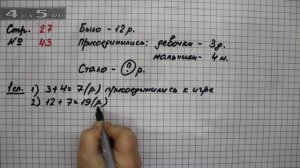 4 по 5.ru
Стр. 27
№ 43
Было - 12 р.
Присоединились: девочки - 3 р.
мальчики - 4 м.
Стало - ? р.
1 сп. 1) 3+4=7(р) присоединились к игре
2) 12+7=19(р)